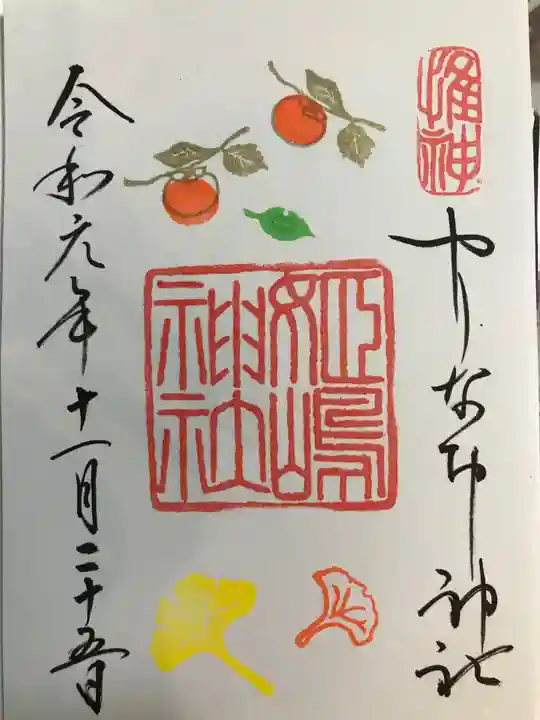 やりなおし神社
姫嶋神社
令和元年十一月二十五日